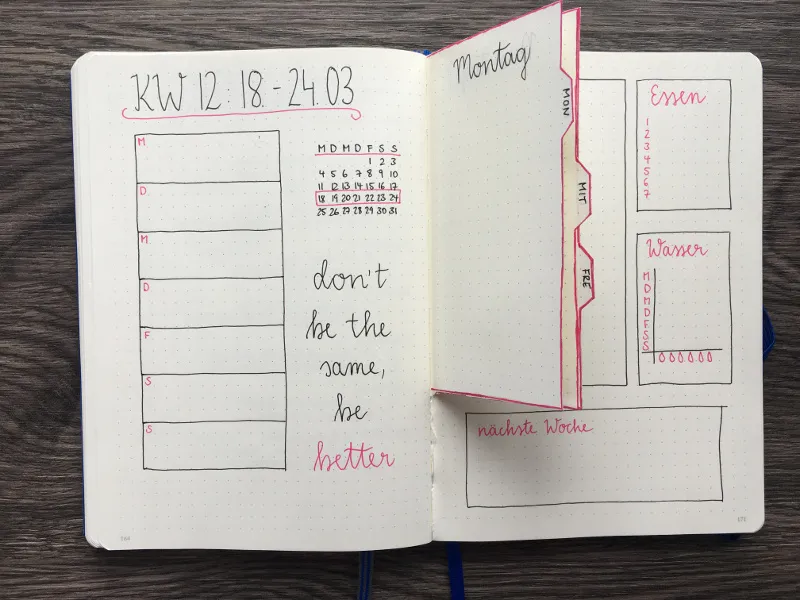 KW 12: 18.-24.03
M
D
M
D
F
S
S
M D M D F S S
1 2 3
4 5 6 7 8 9 10
11 12 13 14 15 16 17
18 19 20 21 22 23 24
25 26 27 28 29 30 31
don't
be the
same,
be
better
Montag
MON
MIT
FRE
Essen
1
2
3
4
5
6
7
Wasser
M
D
M
D
F
S
S
nächste Woche